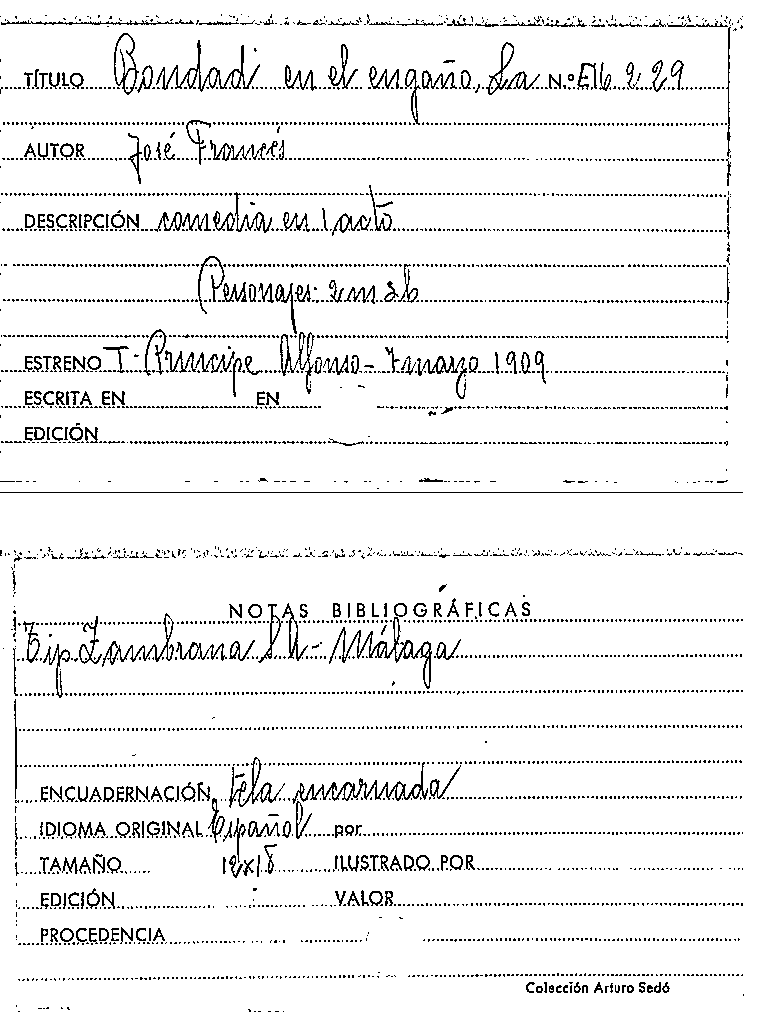 TÍTULO Bondad en el engaño, La N.º E16 2 29
AUTOR José Francés
DESCRIPCIÓN comedia en 1 acto
Personajes: 2m 2h
ESTRENO T. Príncipe Alfonso - 7 marzo 1909
ESCRITA EN EN
EDICIÓN
NOTAS BIBLIOGRÁFICAS
Tip Zambrana SA - Málaga
ENCUADERNACIÓN tela encarnada
IDIOMA ORIGINAL Español por
TAMAÑO 12x18 ILUSTRADO POR
EDICIÓN VALOR
PROCEDENCIA
Colección Arturo Sedó